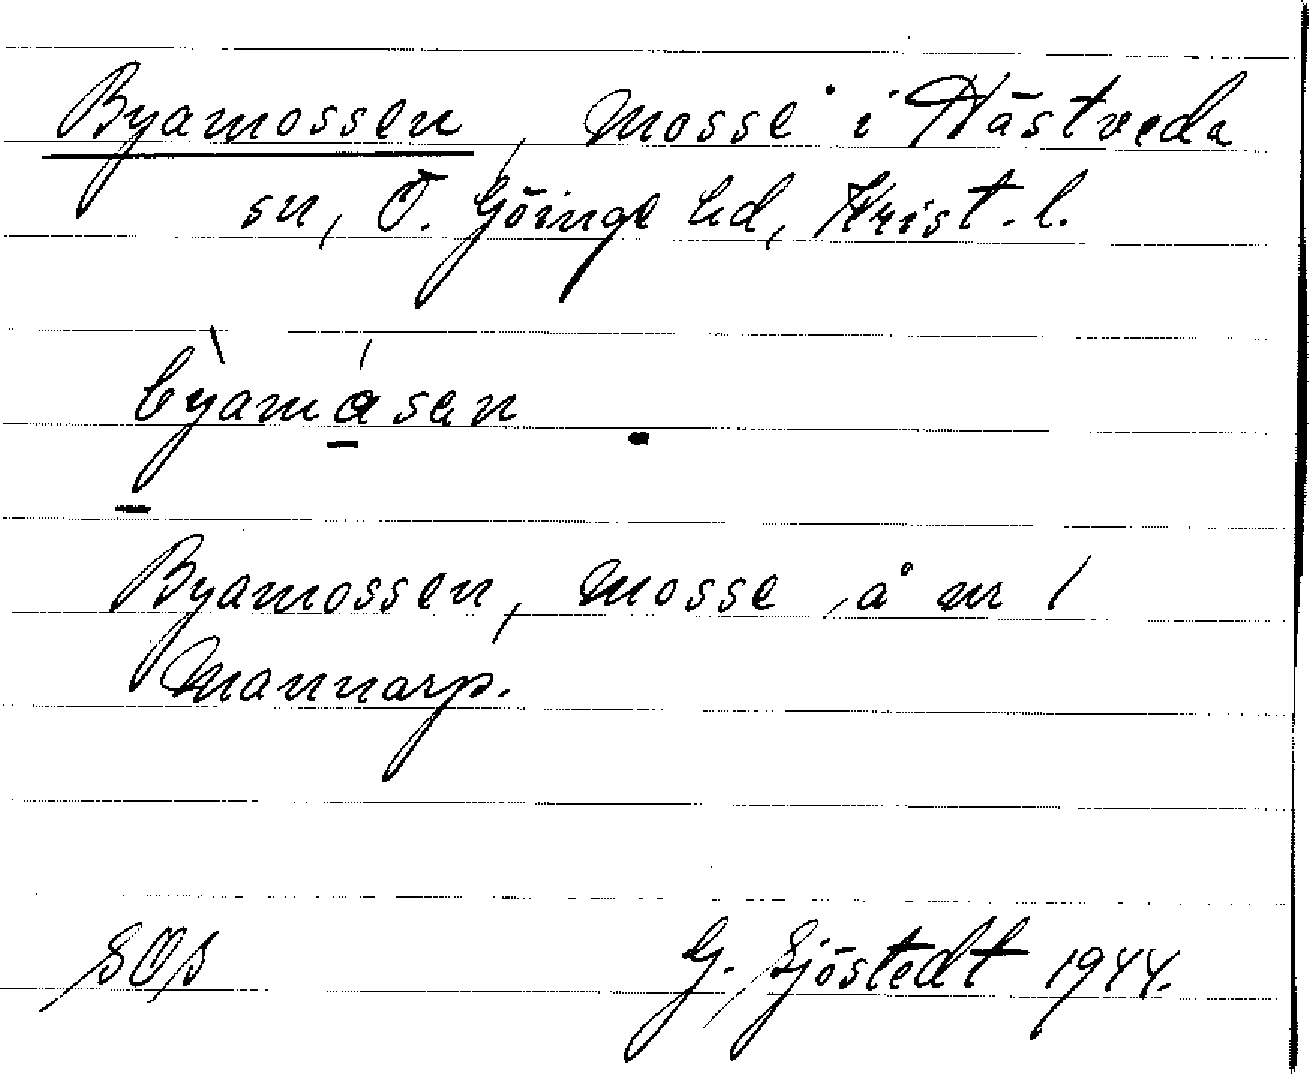 Byamossen, mosse i Hästveda
sn, Ö. Göinge hd, Krist. l.
bỳamása̤n
Byamossen, mosse å nr 1
Mannarp.
SOS
G. Sjöstedt 1944.